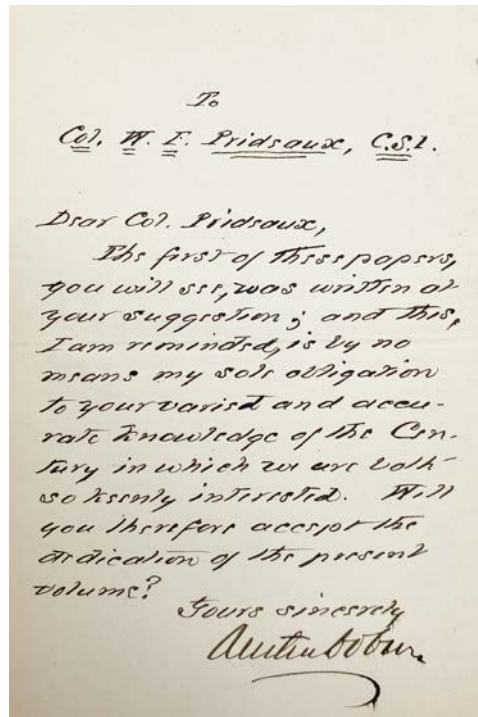 To
Col. W. F. Prideaux, C.S.I.
Dear Col. Prideaux,
The first of these papers,
you will see, was written at
your suggestion; and this,
I am reminded, is by no
means my sole obligation
to your varied and accu-
rate knowledge of the Cen-
tury in which we are both
so keenly interested. Will
you therefore accept the
dedication of the present
volume?
Yours sincerely
Austin Dobson.